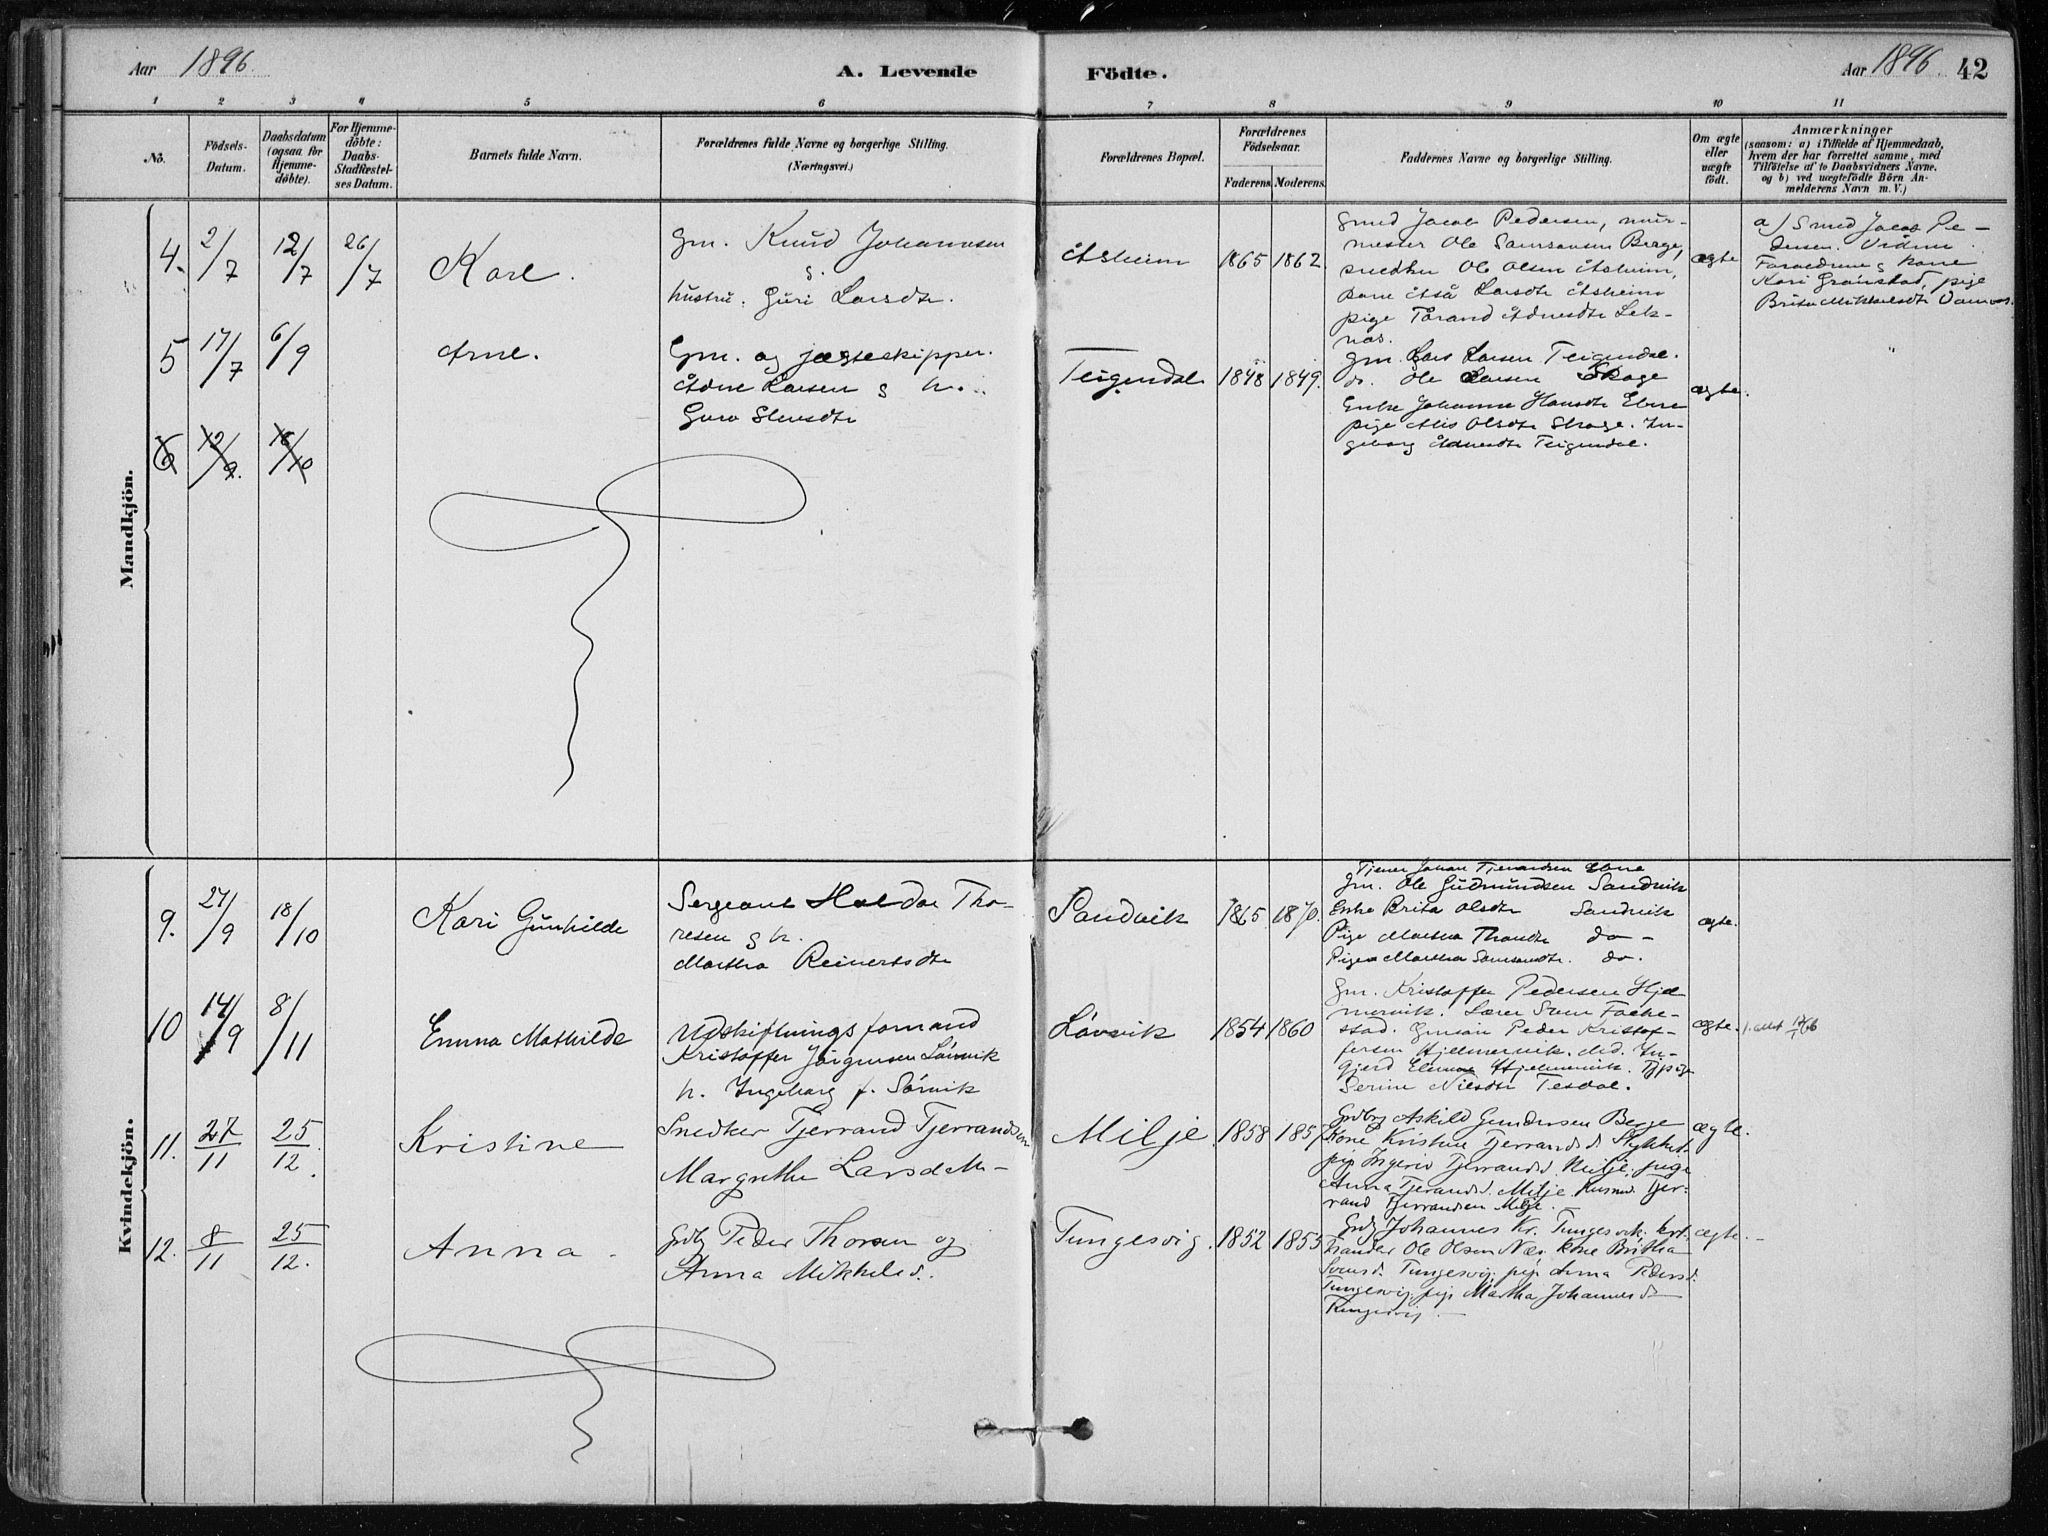 Aar 1896.
A. Levende
Födte.
Aar 1896 42
1 2 3 4 5 6 7 8 9 10 11
No.
Födsels-
Datum.
Daabsdatum
(ogsaa for
Hjemme-
döbte).
For Hjemme-
döbte:
Daabs-
Stadfæstel-
ses Datum.
Barnets fulde Navn.
Forældrenes fulde Navne og borgerlige Stilling.
(Næringsvei.)
Forældrenes Bopæl.
Forældrenes
Födselsaar.
Faderens. Moderens.
Faddernes Navne og borgerlige Stilling.
Om ægte
eller
uægte
födt.
Anmærkninger
(saasom: a) i Tilfælde af Hjemmedaab,
hvem der har forrettet samme, med
Tilföielse af to Daabsvidners Navne.
og b) ved uægtefödte Börn An-
melderens Navn m. V.)
Mandkjön.
4. 2/7 12/7 26/7
Karl.
Gm. Knud Johannesen
&
hustru. Guri Larsdtr.
Åtsheim 1865 1862.
Smed Jacob Pedersen, mur-
mester Ole Samsonsen Berge,
snedker Ole Olsen Åtsheim,
kone Åså Larsdtr Åtsheim
pige Tårand Ådnesdtr Lek-
nås.
ægte
a) Smed Jacob Pe-
dersen. Vidner
Forældrene & kone
Kari Grönstad, pige
Brita Mikkelsdtr
5 17/7 6/9
Arne.
Gm. og jægteskipper.
Ådne Larsen & h.
Guro Slensdtr
Teigendal 1848 1849.
Gm. Lars Larsen Teigendal.
do. Ole Larsen Skage
Enke Johanne Hansdtr Ebne
pige Alis Olsdtr Skage. In-
geborg Ådnesdtr Teigendal.
ægte.
6 12/9. 18/10
Kvindekjön.
9. 27/9 18/10
Kari Gunhilde
Sergeant Haldor Tho-
resen & h.
Martha Reinertsdtr
Sandvik 1865 1870.
Tjener Johan Tjerandsen Ebne
Gm. Ole Gudmundsen Sandvik
Enke Brita Olsdtr Sandvik
Pige Martha Thorsdtr do-
Pigen Martha Samsonsdtr. do.
ægte.
10 14/9 8/11
Emma Mathilde
Udskiftningsformand
Kristoffer Jörgensen Lövvik
h. Ingeborg f. Sörvik
Lövvik 1854 1860
Gm. Kristoffer Pedersen Hjel
mervik. Lærer Sam Fatke-
stad. Gmsön Peder Kristof-
fersen Hjelmervik. Md. In-
gjerd Hjelmervik. Tjpige
Serine Nilsdtr Tesdal.
ægte.
11. 27/11 25/12.
Kristine
Snedker Tjerrand Tjerrandsen
Margrethe Larsdatt-
Milje. 1858 1857
Grdbr Askild Gundersen Berge
Kone Kristine Tjerrandsd. Stykket
pige Ingerid Tjerrandsd. Milje. pige
Anna Tjerandsd. Milje. Husmd. Tjer-
rand Tjerrandsen Milje.
ægte.
12. 8/11 25/12.
Anna.
Grdbr Peder Thorsen og
Anna Mikkelsd.
Tungesvig. 1852 1855
Grdbr Johannes Kr. Tungesvik, krt.
Trander Ole Olsen Næs. Kone Britha
Svensd. Tungesvig, pige Anna Pedersd.
Tungesvig. pige Martha Johannesd
Tungesvig
ægte.